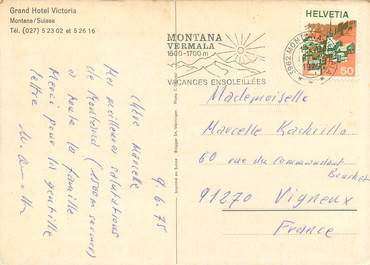 Grand Hotel Victoria
Montana/Suisse
Tél. (027) 5 23 02 et 5 26 16
MONTANA
VERMALA
1500-1700 m
VACANCES ENSOLEILLÉES
3962 MONTANA
HELVETIA
50
9.6.75
Chère Marcelle
Mes meilleures salutations
de Montana (1500 m s/mer)
à toute la famille
Merci pour la gentille
lettre
Imprimé en Suisse
Mademoiselle
Marcelle
60 rue du Commandant
91270 Vigneux
France